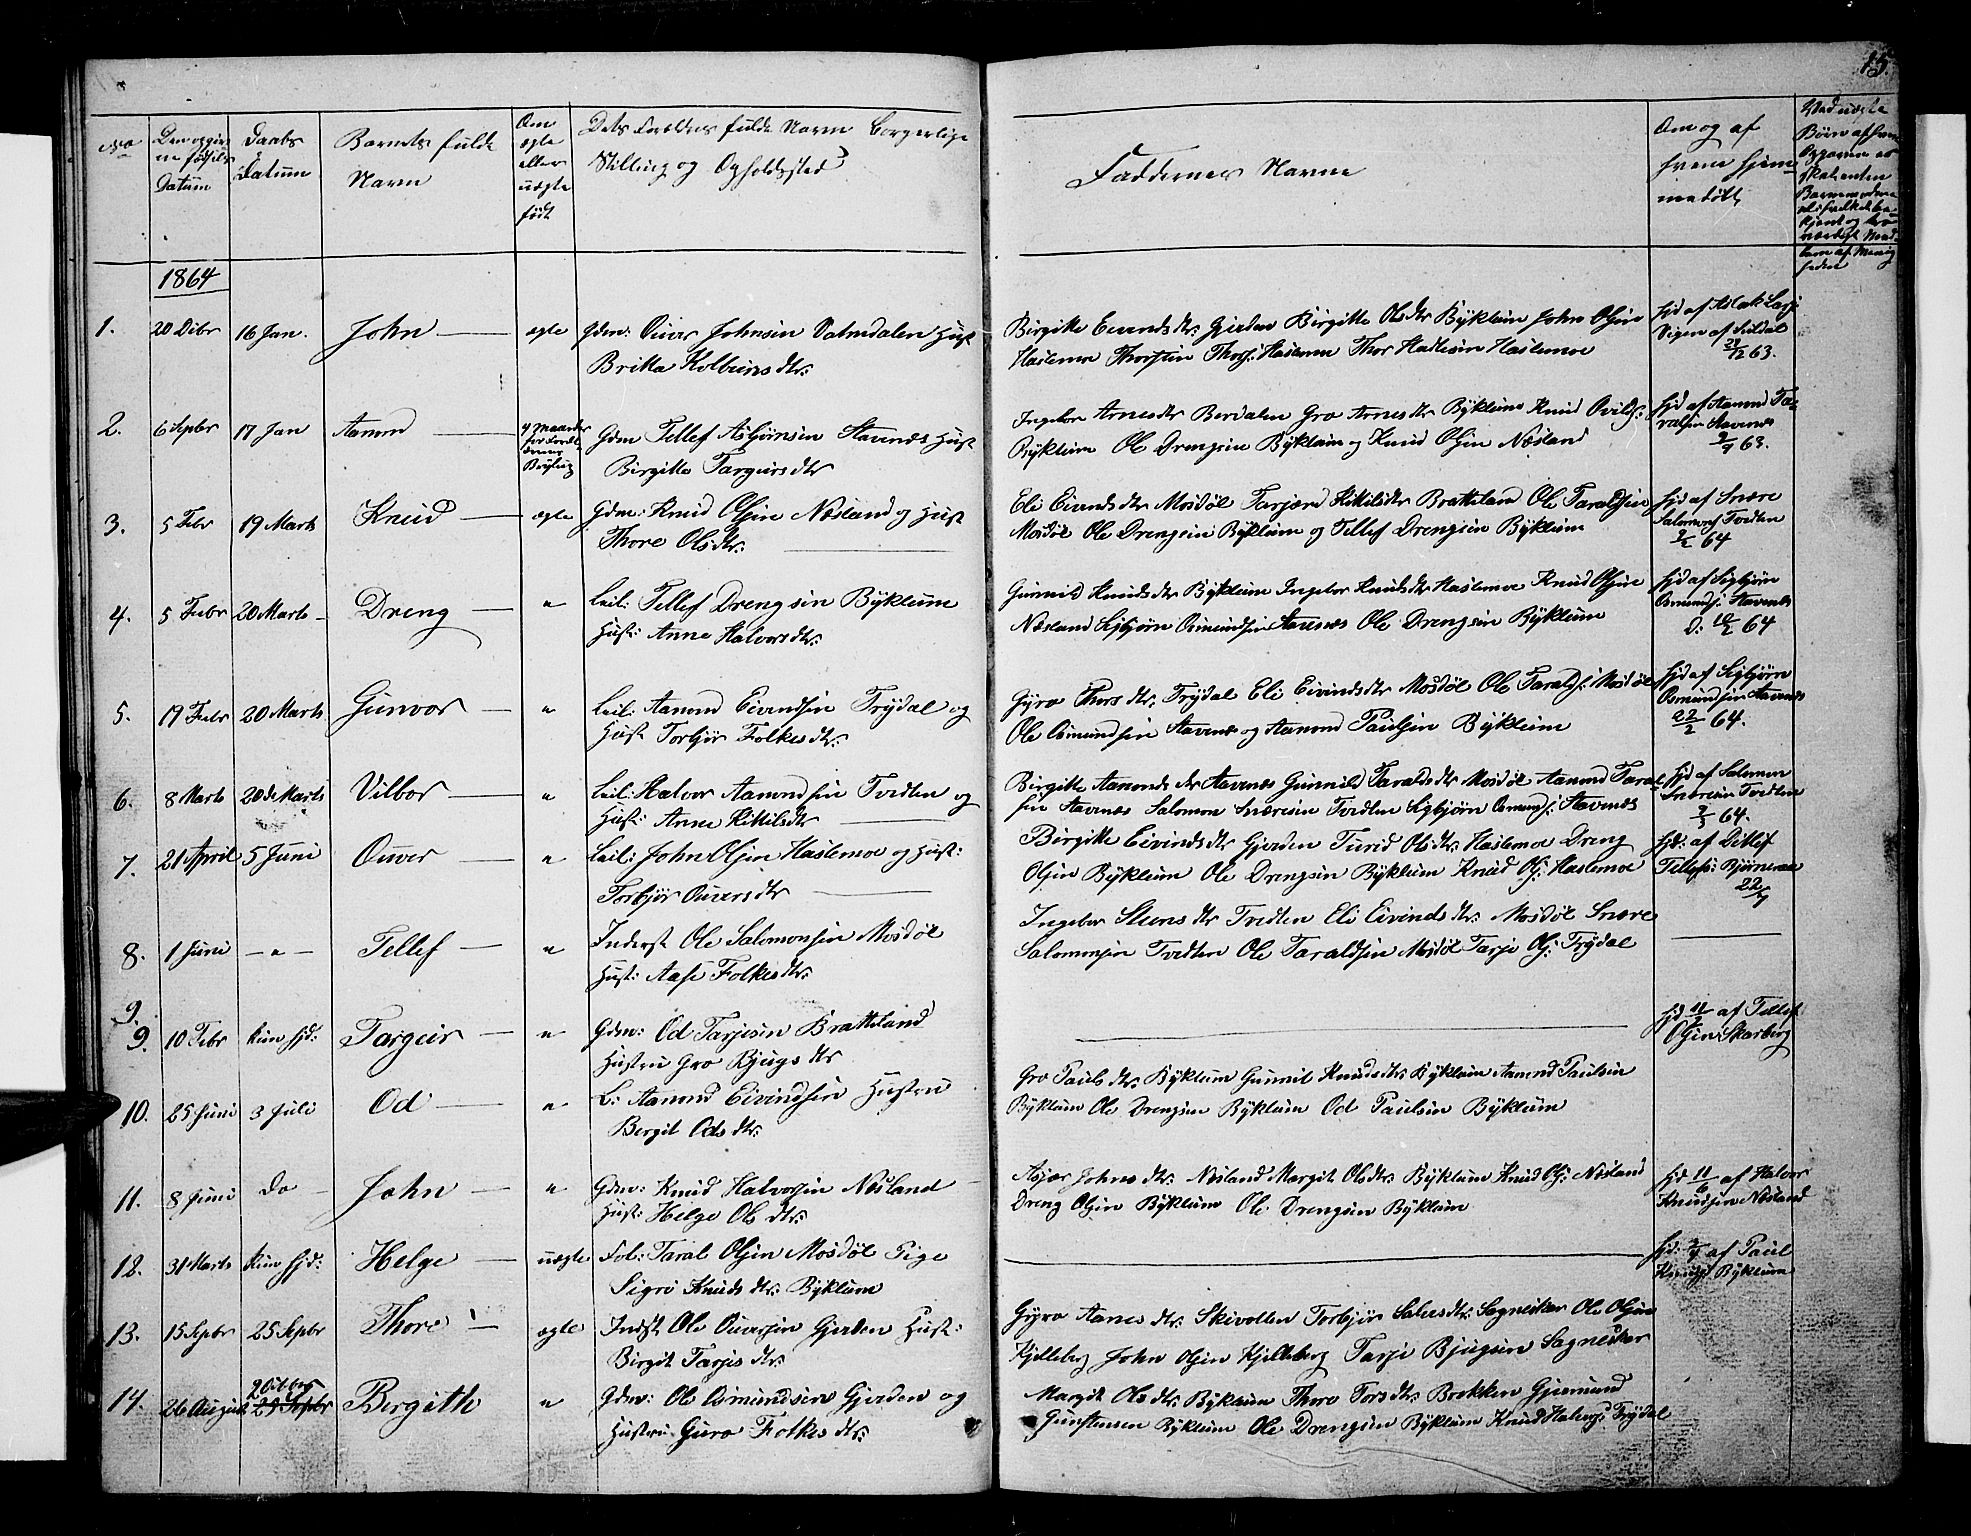 15.
No
Den opgiv=
ne fødsels
Datum
Daabs
Datum
Barnets fulde
Navn
Om
ægte
eller
uægte
født
Dets Forældres fulde Navn borgerlige
Stilling og Opholdssted
Faddernes Navne
Om og af
hvem hjem=
medøbt
1864
1. 20 Dcbr 16 Jan. John ægte Gdm: Ouver Johnsen Vatndalen Hust
Britha Kolbeins dtr:
Birgitte Eivends dtr: Gjerden Birgitte Ols dtr Bÿkleum John Olsin
Haslemoe Thorstin Thors: Haslemoe Thor Hallesin Haslemoe
hjd af Aslak Larj
Vigen af Suldal
29/12 63.
2. 6 Sepbr 17 Jan Aamon
4 Maaneder
før Foræl=
drenes
Brÿlup
Gdm Tellef Asbjørnsin Stavenæs Hust
Birgitte Targeirs dtr
Ingebor Arnes dtr Berdalen Gro Arnes dtr Bÿkleum Knud
Bÿkleum Ole Drengsin Bÿkleum og Knud Olsin Næsland
hjd af Aamon Ta=
ralsin Stavenæs
9/9 63.
3. 5 Febr 19 Marts Knud ægte Gdm: Knud Olsin Næsland og Hust
Thore Ols dtr:
Eli Eivends dtr Mosdøl Tarjærd Kittils dtr Bratteland Ole Taraldsin
Mosdøl Ole Drengsin Bÿkleum og Tellef Drengsin Bÿkleum
hjd af Snære
Salomons Tvedten
9/2 64
4. 5 Febr 20 Marts Dreng " Leil: Tellef Drengsin Bÿkleum
Hust: Anne Halvors dtr:
Gunnild Knuds dtr Bÿkleum Ingebor Knuds dtr Haslemoe Knud Olsin
Næsland Sigbjørn Osmundsin Stavenæs Ole Drengsin Bÿkleum
hjd af Sigbjørn
Osmundsj. Stavenæs
d: 10/2 64
5. 19 Febr 20 Marts Gunvor " Leil: Aamond Eivendsin Trÿdal og
Hust Torbjør Folkes dtr:
Gÿro Thors dtr: Trÿdal Eli Eivinds dtr Mosdøl Ole Taralds: Mosdøl
Ole Osmundsin Stavenæs og Aamond Paulsin Bÿkleum
hjd af Sigbjørn
Osmundsin Stavenæs
22/2 64.
6. 8 Marts 20de Marts Vilbor " Leil: Halvor Aamondsin Tvedten og
Hust: Anne Kittils dtr
Birgitte Aamonds dtr Stavenæs Gunnild Taralds dtr Mosdøl Aamond Taral=
sin Stavenæs Salomon Snæresin Tvedten Sigbjørn Osmunsj: Stavenæs
hjd af Salomon
Snæresin Tvedten
9/3 64.
7. 21 April 5 Juni Ouver " Leil: John Olsin Haslemoe og Hust:
Torbjør Ouvers dtr
Birgitte Eivinds dtr Gjerden Turid Ols dtr: Haslemoe Dreng
Olsin Bÿkleum Ole Drengsin Bÿkleum Knud Ols: Haslemoe
hjd: af Ditlef
Tellefs: Bjørneraa
22/4
8. 1 Juni — " — Tellef " Inderst Ole Salomonsin Mosdøl
Hust: Aase Folkes dtr:
Ingebor Steens dtr Tvedten Eli Eivinds dtr: Mosdøl Snære
Salomonsin Tvedten Ole Taraldsin Mosdøl Tarje Ols: Trÿdal
9.
9. 10 Febr kun hjd: Targeir " Gdm: Od Tarjesin Bratteland
Hustru Gro Bjugs dtr
hjd 11/2 af Tellef
Olsin Skarberg
10. 25 Juni 3 Juli Od " L: Aamond Eivindsin Hustru
Bergit Ods dtr:
Gro Pauls dtr: Bÿkleum Gunnil Knuds dtr: Bÿkleum Aamond Paulsin
Bÿkleum Ole Drengsin Bÿkleum Od Paulsin Bÿkleum
11. 8 Juni Do John " Gdm: Knud Halvorsin Næsland
Hust: Helge Ols dtr:
Asjær Johns dtr: Næsland Margit Ols dtr: Bÿkleum Knud Ols: Næsland
Dreng Olsin Bÿkleum Ole Drengsin Bÿkleum
hjd 11/6 af Halvor
Knudsin Næsland
12. 31 Marts kun hjd: Helge uægte Fol: Taral Olsin Mosdøl Pige
Sigro Knuds dtr: Bÿkleum
hjd: 2/4 af Paul
Knuds: Bÿkleum
13. 15 Sepbr 25 Sepbr Thore ægte Indst Ole Ouversin Gjerden Hust:
Birgit Tarjes dtr:
Gÿro Aanes dtr: Skivollen Torbjør Salves dtr: Sagneskar Ole Olsin
Kjelleberg John Olsin Kjelleberg Tarje Bjugsin Sagneskar
14. 26 August 2 Octbr 25 Sepbr Bergith " Gdm: Ole Osmundsen Gjerden og
Hustru Guro Folkes dtr:
Margit Ols dtr: Bÿkleum Thore Tors dtr: Brokken Gjermund
Gunstensen Bÿkleum Ole Drengsin Bÿkleum Knud Halvors: Trÿdal